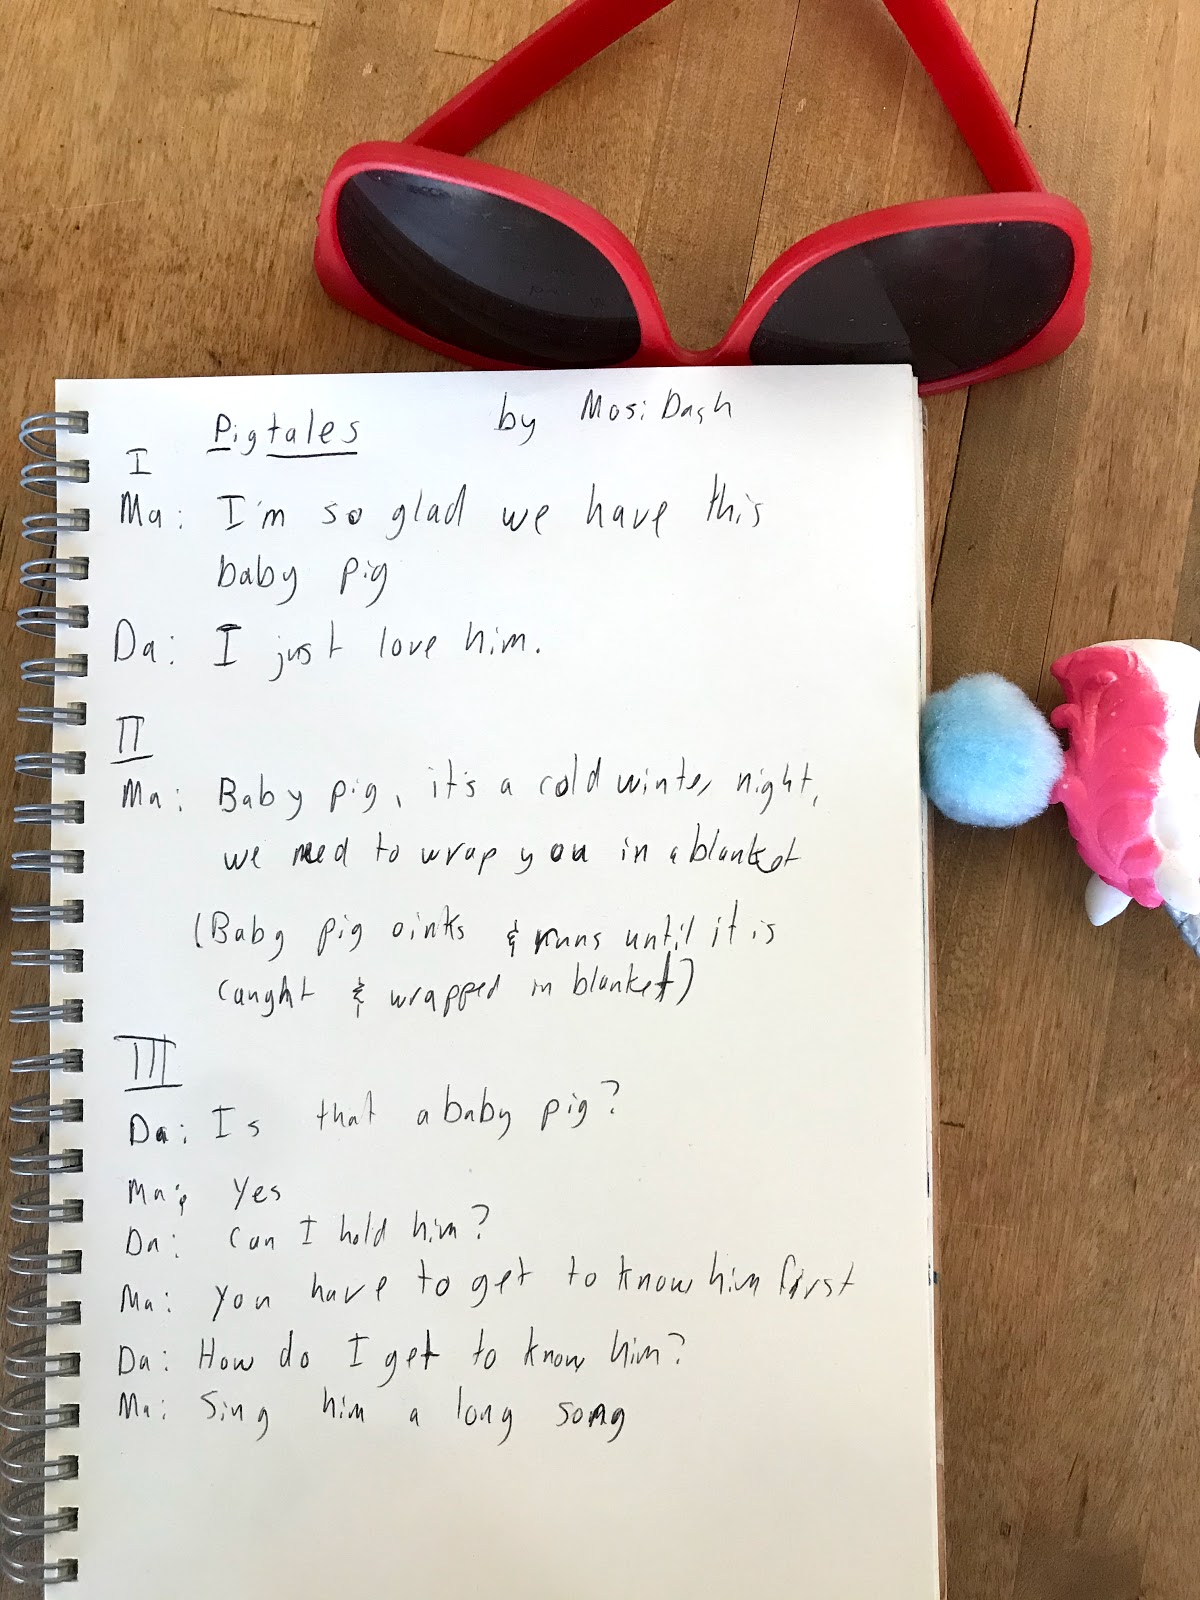 Pigtales by Mosi Dash
I
Ma: I'm so glad we have this
baby pig
Da: I just love him.
II
Ma: Baby pig, it's a cold winter night,
we need to wrap you in a blanket
(Baby pig oinks & runs until it is
caught & wrapped in blanket)
III
Da: Is that a baby pig?
Ma: Yes
Da: Can I hold him?
Ma: You have to get to know him first
Da: How do I get to know him?
Ma: Sing him a long song